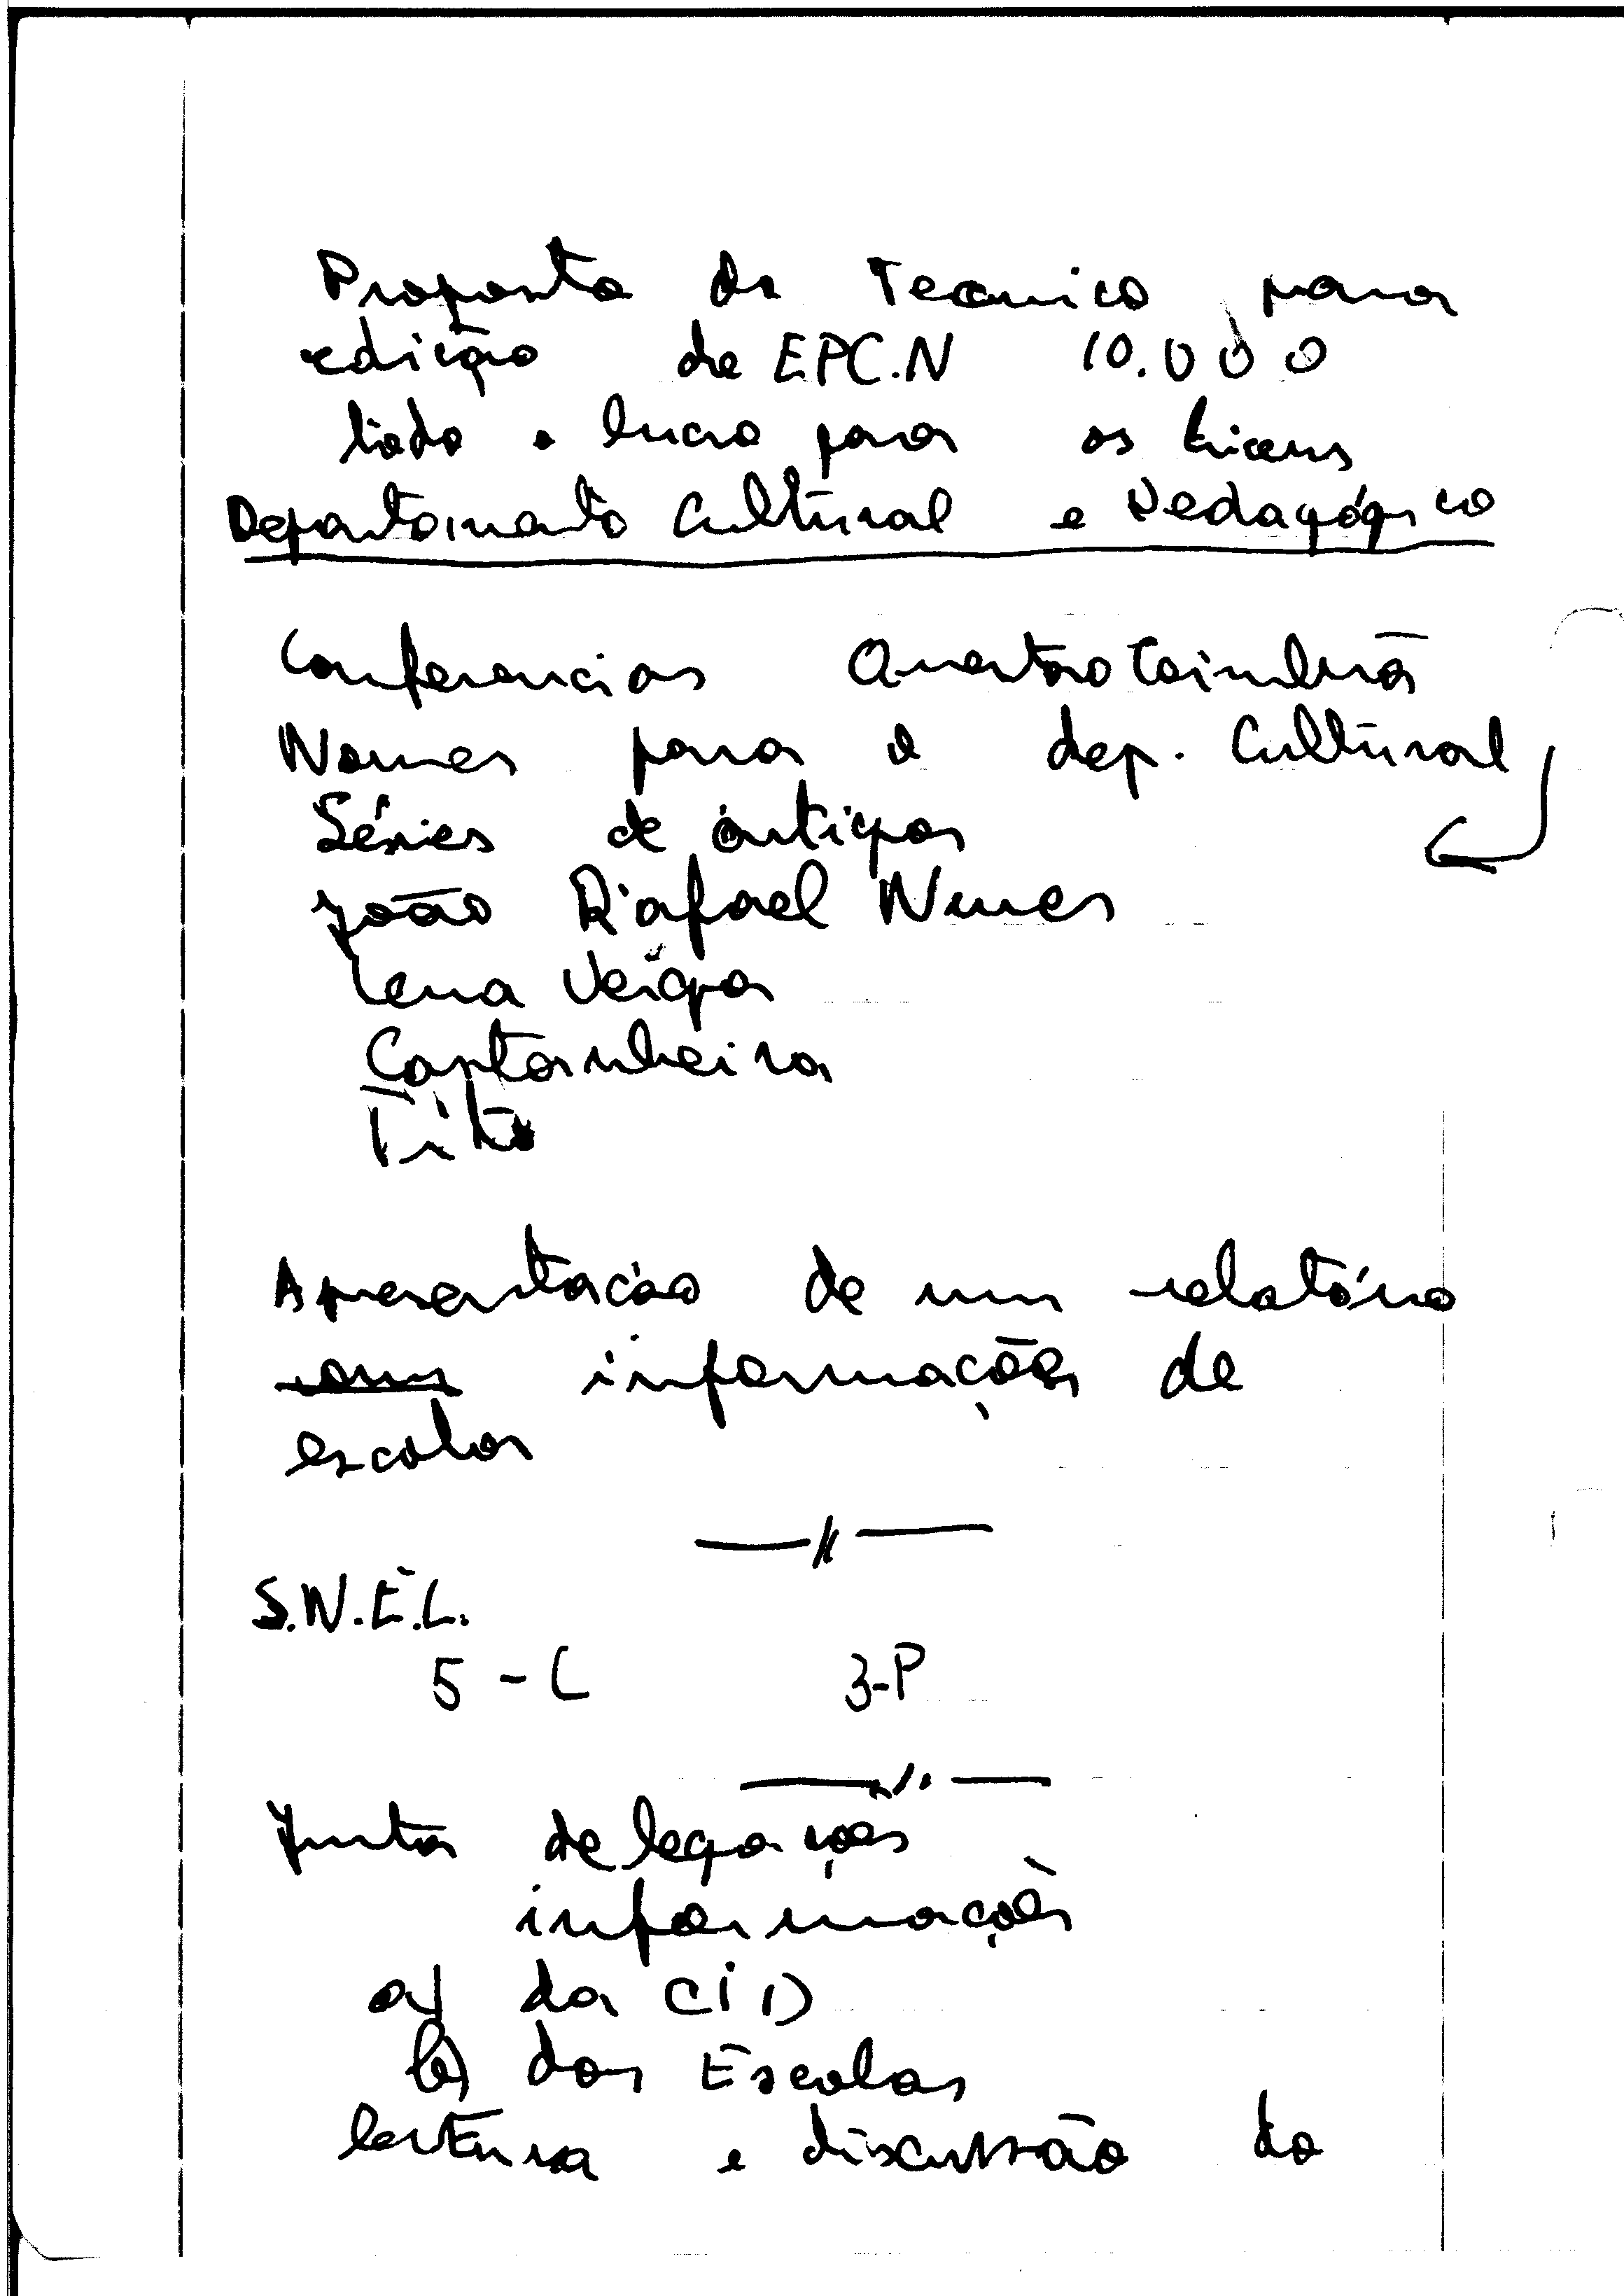 Proposta do Tecnico para
edição de EPC.N 10.000
todo o lucro para os liceus
Departamento Cultural e Pedagógico
Conferencias Coimbra
Nomes para o dep. Cultural
Séries de artigos
João Rafael Nunes
Lena Veiga
Castanheira
Tito
Apresentação de um relatório
com informações de
escolas
S.N.E.L.
5 - C 3-P
Junta delegações
informações
a) da CID
b) das Escolas
leitura e discussão do